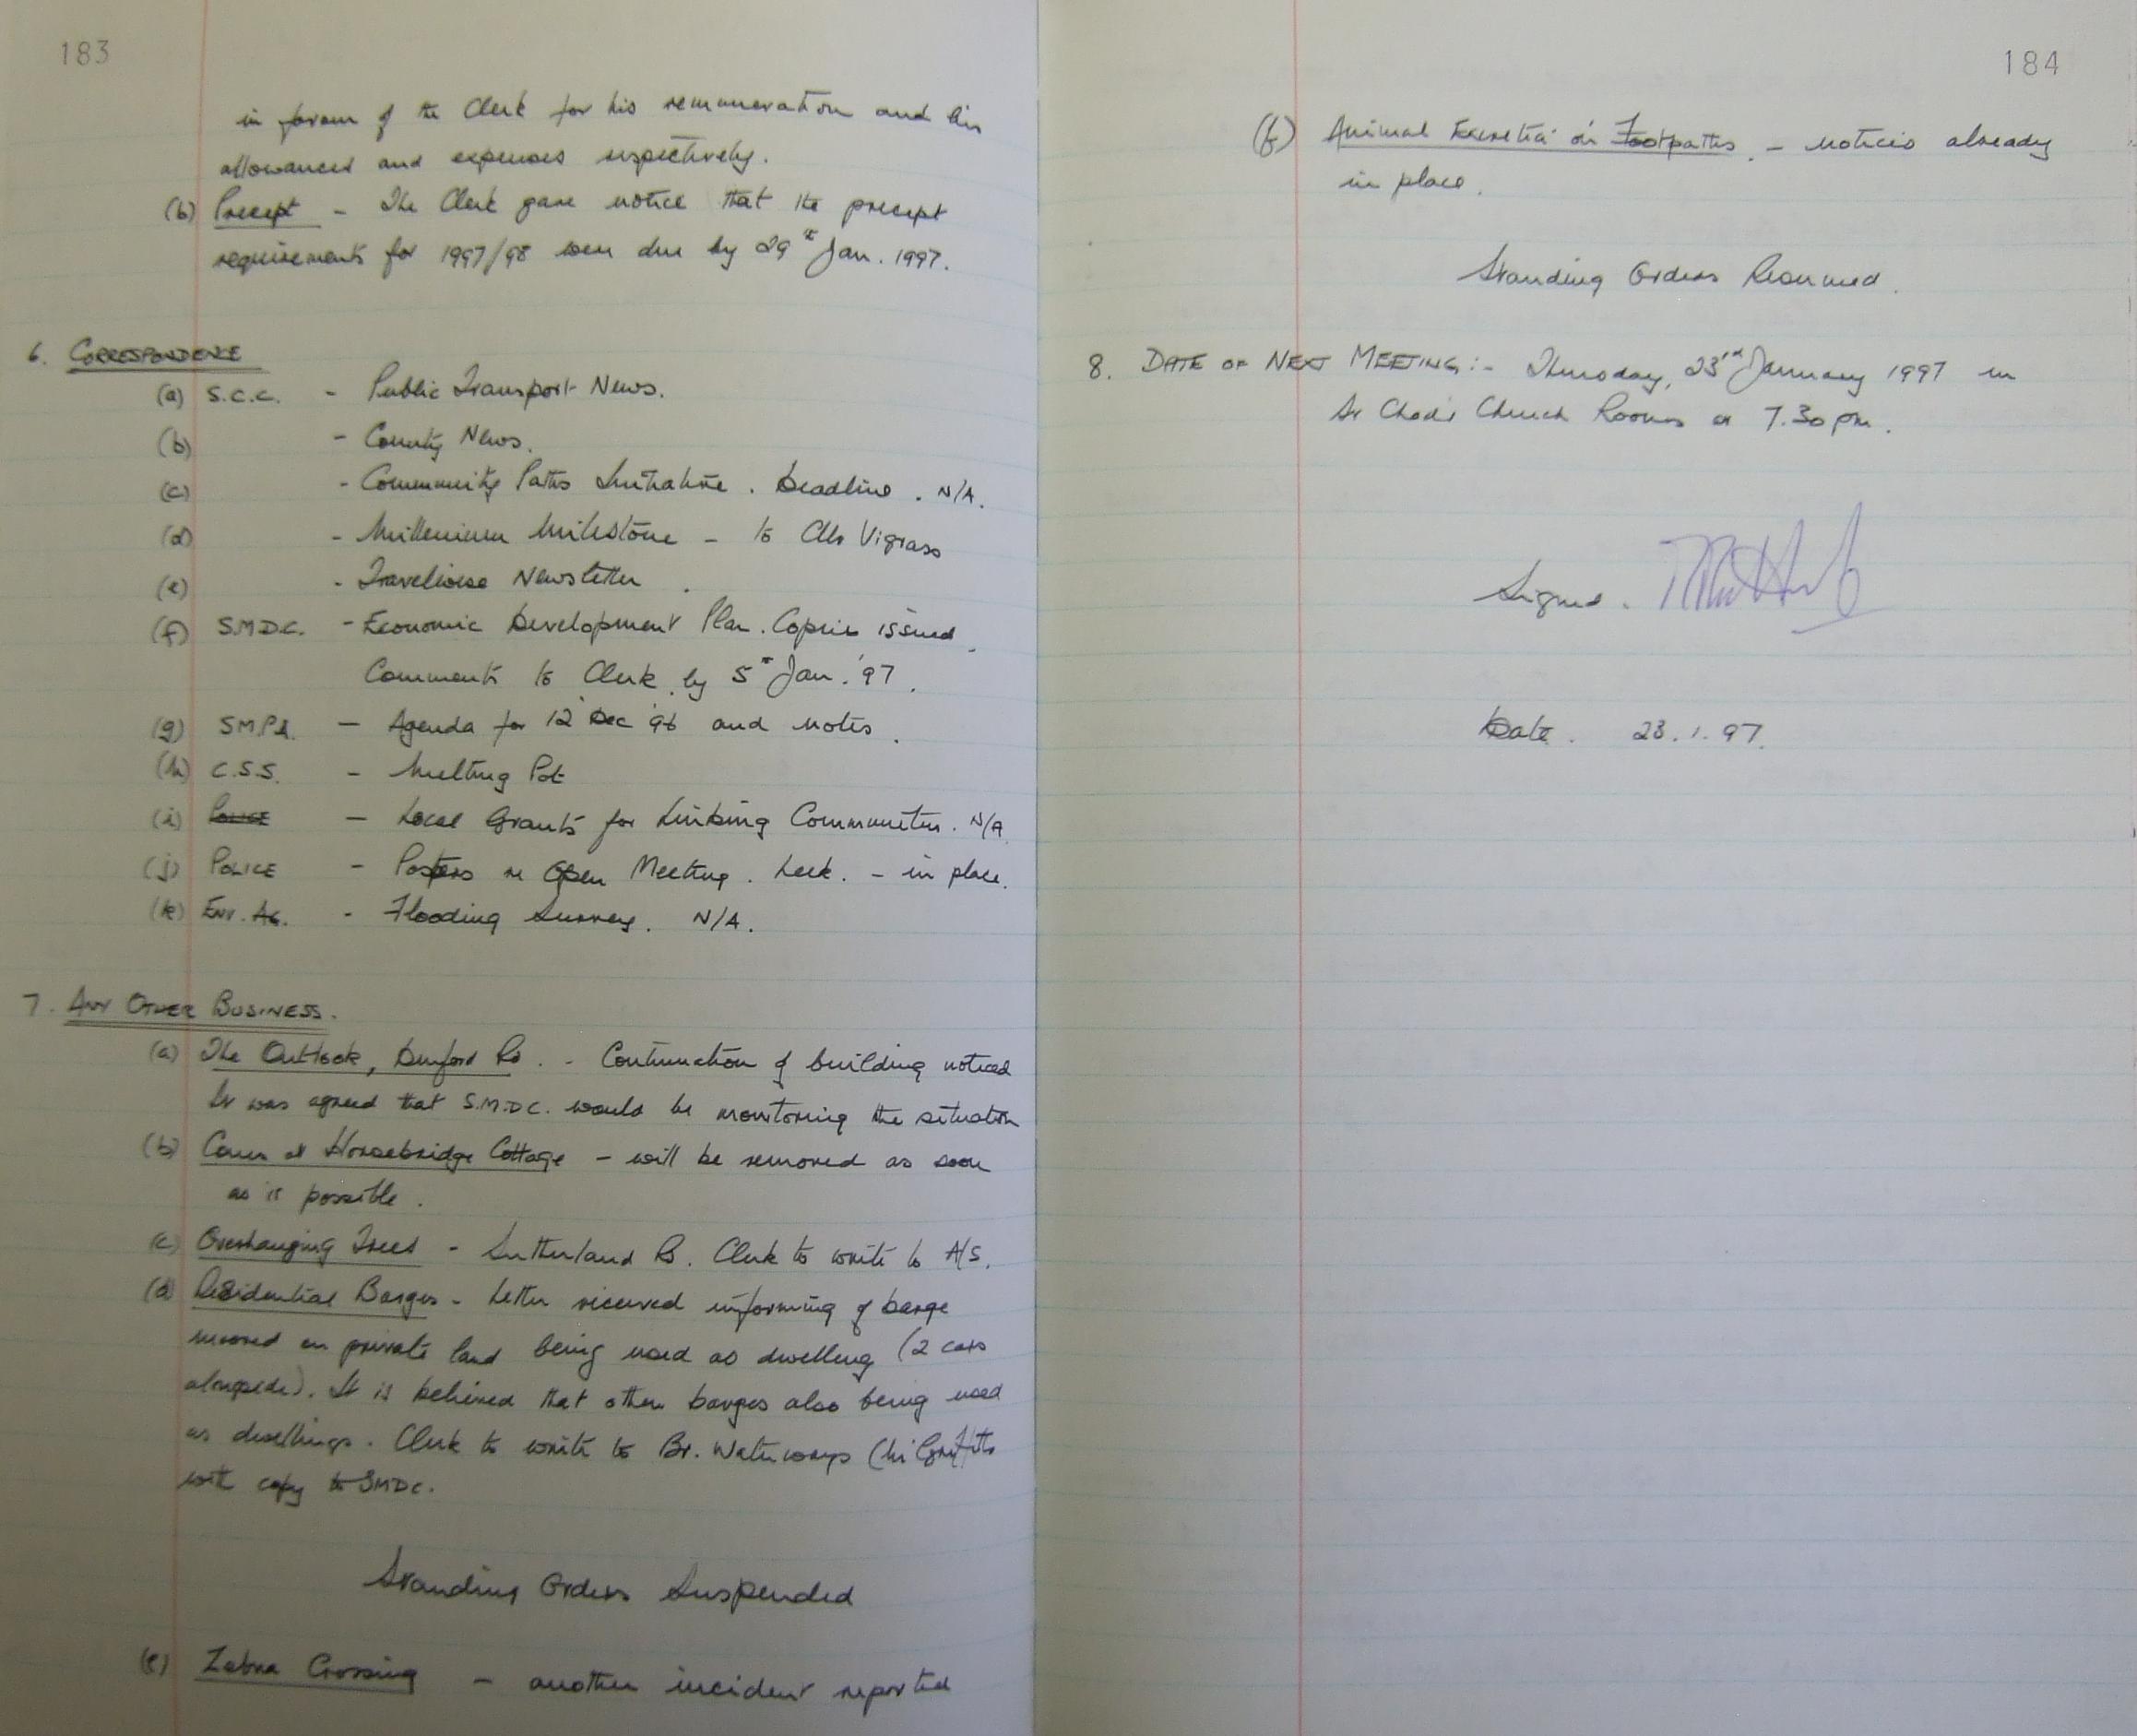 183
in favour of the Clerk for his remuneration and his
allowances and expenses respectively.
(b) Precept - The Clerk gave notice that the precept
requirements for 1997/98 were due by 29th Jan. 1997.
6. CORRESPONDENCE
(a) S.C.C. - Public Transport News.
(b) - County News.
(c) - Community Paths Initiative. Deadline. N/A.
(d) - Millenium Milestone - to Cllr Vigrass
(e) - Travelwise Newsletter.
(f) S.M.D.C. - Economic Development Plan. Copies issued.
Comments to Clerk by 5th Jan. '97.
(g) S.M.P.A. - Agenda for 12 Dec '96 and notes.
(h) C.S.S. - Melting Pot
(i) POLICE - Local Grants for Linking Communities. N/A
(j) POLICE - Posters re Open Meeting. Leek. - in place.
(k) ENV. AG. - Flooding Survey. N/A.
7. ANY OTHER BUSINESS.
(a) The Outlook, Denford Rd. - Continuation of building noticed
It was agreed that S.M.D.C. would be monitoring the situation
(b) at Horsebridge Cottage - will be removed as soon
as is possible.
(c) Overhanging Trees - Sutherland Rd. Clerk to write to A/S.
(d) Residential Barges - Letter received informing of barge
moored on private land being used as dwelling (2 cars
alongside). It is believed that other barges also being used
as dwellings. Clerk to write to Br. Waterways (Mr Griffiths
with copy to SMDC.
Standing Orders Suspended
(e) Zebra Crossing - another incident reported
184
(f) Animal Excretia on Footpaths. - notices already
in place.
Standing Orders Resumed.
8. DATE OF NEXT MEETING:- Thursday, 23rd January 1997 in
St Chad's Church Rooms at 7.30 pm.
Signed.
Date. 23.1.97.